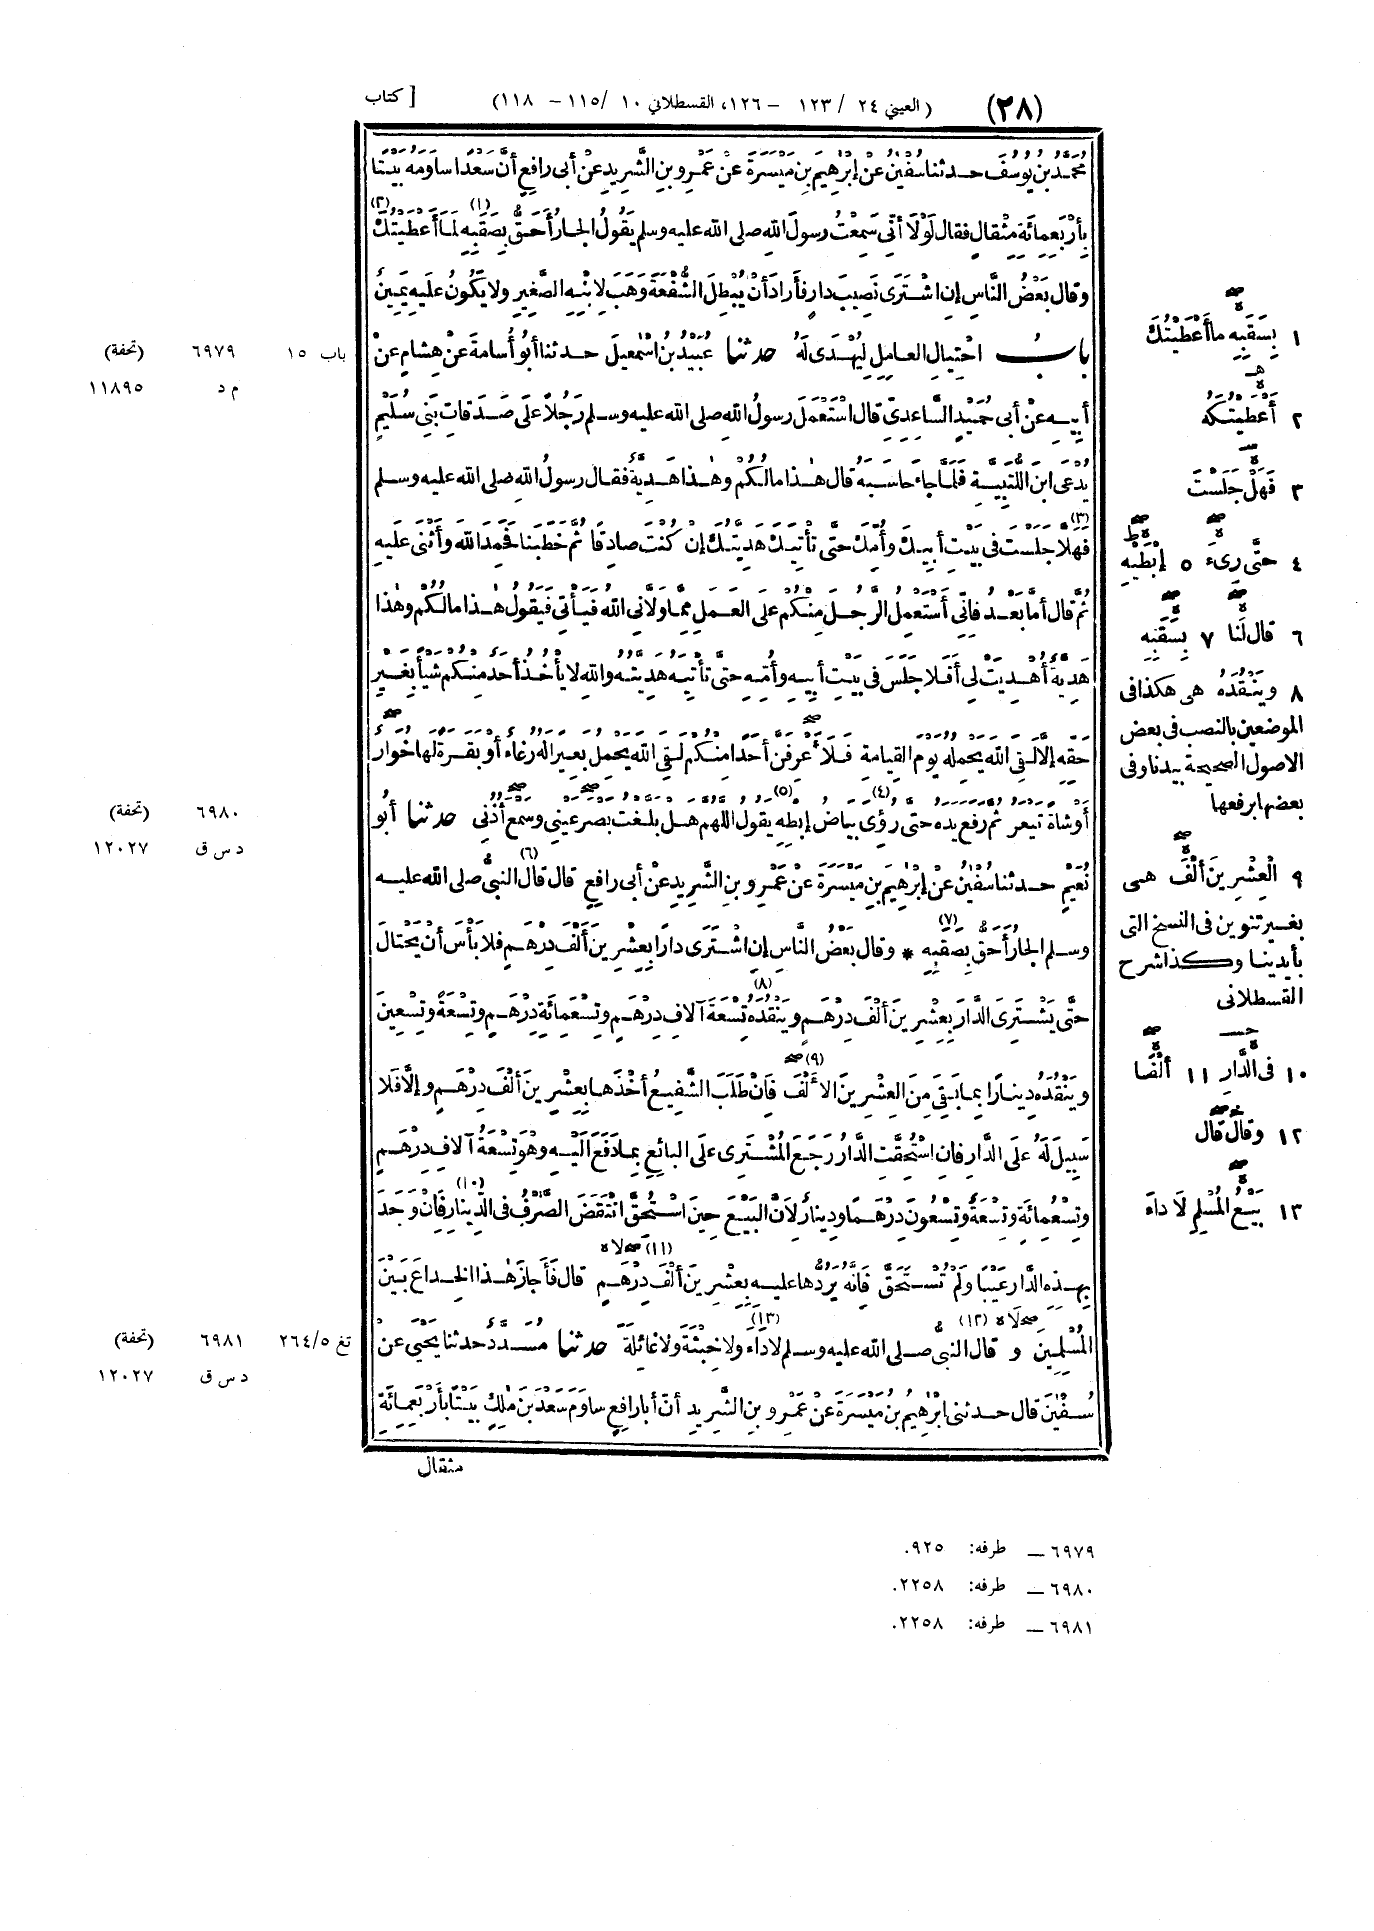 (٢٨) (العيني ٢٤ / ١٢٣ – ١٢٦، القسطلاني ١٠ /١١٥ – ١١٨) [ كتاب
مُحَمَّدُ بنُ يُوسُفَ حدثنا سُفْيٰنُ عنْ إبْرٰهِيمَ بنِ مَيْسَرَةَ عنْ عَمْرِو بنِ الشَّرِيدِ عنْ أبى رافِعٍ أنَّ سَعْدًا ساوَمَهُ بَيْتًا
بِأرْبَعِمائَةِ مِثْقالٍ فقال لَوْلَا أنّى سَمِعْتُ رسولَ اللهِ صلى الله عليه وسلم يَقُولُ الجارُ أحَقُّ بِصَقَبِهِ (١) لَمَا أعْطَيْتُكَ (٢)
وقال بَعْضُ النَّاسِ إنِ اشْتَرَى نَصِيبَ دارٍ فأرادَ أنْ يُبْطِلَ الشُّفْعَةَ وهَبَ لابْنِهِ الصَّغِيرِ ولا يَكُونُ عليه يَمِينٌ
بابُ احْتِيالِ العامِلِ لِيُهْدَى لَهُ حدثنا عُبَيْدُ بنُ اسْمٰعيلَ حدثنا أبُو أُسامةَ عنْ هِشامٍ عنْ
أبِيهِ عنْ أبى حُمَيْدٍ السَّاعِدِىّ قال اسْتَعْمَلَ رسولُ اللهِ صلى الله عليه وسلم رَجُلًا علَى صَدَقاتِ بَنِى سُلَيْمٍ
يُدْعَى ابنَ اللُّتَبِيَّةِ فَلمَّا جاءَ حاسَبَهُ قال هٰذا مالُكُمْ وهٰذا هَدِيَّةٌ فقال رسولُ اللهِ صلى الله عليه وسلم
فَهَلَّا جَلَسْتَ (٣) فى بَيْتِ أبِيكَ وأُمِّكَ حتَّى تَأْتِيَكَ هَدِيَّتُكَ إنْ كُنْتَ صادِقًا ثُمَّ خَطَبَنا فَحَمِدَ اللهَ وأثْنَى علَيهِ
ثُمَّ قال أمَّا بَعْدُ فَانِّى أسْتَعْمِلُ الرَّجُلَ مِنْكُمْ علَى العَمَلِ مِمَّا ولَّانِى اللهُ فَيَأْتِى فَيَقُولُ هٰذا مالُكُمْ وهٰذا
هَدِيَّةٌ أُهْدِيَتْ لِى أفَلا جَلَسَ فى بَيْتِ أبِيهِ وأُمِّهِ حتَّى تَأْتِيَهُ هَدِيَّتُهُ واللهِ لا يأْخُذُ أحَدٌ مِنْكُمْ شَيْأً بِغَيْرِ
حَقِّهِ إلَّا لَقِىَ اللهَ يَحْمِلُهُ يَوْمَ القِيامَةِ فَلَأَعْرِفَنَّ أحَدًا مِنْكُمْ لَقِىَ اللهَ يَحْمِلُ بَعِيرًا لَهُ رُغاءٌ أوْ بَقَرَةً لَها خُوَارٌ
أوْ شاةً تَيْعَرُ ثُمَّ رَفَعَ يَدَهُ حتَّى رُؤِىَ (٤) بَياضُ إبْطِهِ (٥) يَقُولُ اللّٰهُمَّ هَلْ بَلَّغْتُ بَصْرَ عَيْنِى وسَمْعَ أُذُنِى حدثنا أبُو
نُعَيْمٍ حدثنا سُفْيٰنُ عنْ إبْرٰهِيمَ بنِ مَيْسَرَةَ عنْ عَمْرِو بنِ الشَّرِيدِ عنْ أبى رافِعٍ قال قال (٦) النبىُّ صلى الله عليه
وسلم الجارُ أحَقُّ بِصَقَبِهِ (٧) * وقال بَعْضُ النَّاسِ إنِ اشْتَرَى دارًا بِعِشْرِينَ ألْفَ دِرْهَمٍ فلا بَأْسَ أنْ يَحْتالَ
حتَّى يَشْتَرِىَ الدَّارَ بِعِشْرِينَ ألْفَ دِرْهَمٍ ويَنْقُدُهُ (٨) تِسْعَةَ آلافِ دِرْهَمٍ وتِسْعَمِائَةِ دِرْهَمٍ وتِسْعَةً وتِسْعِينَ
ويَنْقُدُهُ دِينارًا بِما بَقِىَ مِنَ العِشْرِينَ الألْفَ (٩) فَانْ طَلَبَ الشَّفِيعُ أخَذَها بِعِشْرِينَ ألْفَ دِرْهَمٍ وإلَّا فَلا
سَبِيلَ لَهُ علَى الدَّارِ فانِ اسْتُحِقَّتِ الدَّارُ رَجَعَ المُشْتَرِى علَى البائِعِ بِما دَفَعَ الَيْهِ وهْوَ تِسْعَةُ آلافِ دِرْهَمٍ
وتِسْعُمِائَةٍ وتِسْعَةٌ وتِسْعُونَ دِرْهَمًا ودِينارٌ لِأنَّ البَيْعَ حِينَ اسْتُحِقَّ انْتَقَضَ الصَّرْفُ فى الدِّينارِ (١٠) فَانْ وَجَدَ
بِهٰذِهِ الدَّارِ عَيْبًا ولَمْ تُسْتَحَقَّ فَانَّهُ يَرُدُّها عليهِ بِعِشْرِينَ ألْفَ (١١) دِرْهَمٍ قال فَأجازَ هٰذا الخِداعَ بَيْنَ
المُسْلِمِينَ وقال (١٢) النبىُّ صلى الله عليه وسلم لا داءَ (١٣) ولا خِبْثَةَ ولا غائِلَةَ حدثنا مُسَدَّدٌ حدثنا يَحْيَى عنْ
سُفْيٰنَ قال حدثنى ابْرٰهِيمُ بنُ مَيْسَرَةَ عنْ عَمْرِو بنِ الشَّرِيدِ أنَّ أبا رافِعٍ ساوَمَ سَعْدَ بنَ مٰلِكٍ بَيْتًا بِأرْبَعِمِائَةِ
مثقال
١ بِسَقَبِهِ ما أعْطَيْتُكَ
٢ أعْطَيْتُكَهُ
٣ فَهَلْ جَلَسْتَ
٤ حتَّى رِىءَ ٥ إبْطَيْهِ
٦ قال لَنا ٧ بِسَقَبِهِ
٨ ويَنْقُدُهُ هى هكذا فى
الموضعين بالنصب فى بعض
الاصول الصحيحة بيدنا وفى
بعضها برفعها
٩ العِشْرِينَ ألْفَ هى
بغير تنوين فى النسخ التى
بأيدينا وكذا شرح
القسطلانى
١٠ فى الدَّارِ ١١ ألْفًا
١٢ وقال قال
١٣ بَيْعُ المُسْلِمِ لا داءَ
باب ١٥ ٦٩٧٩ (تحفة)
م د ١١٨٩٥
٦٩٨٠ (تحفة)
د س ق ١٢٠٢٧
تغ ٥/٢٦٤ ٦٩٨١ (تحفة)
د س ق ١٢٠٢٧
٦٩٧٩ — طرفه: ٩٢٥.
٦٩٨٠ — طرفه: ٢٢٥٨.
٦٩٨١ — طرفه: ٢٢٥٨.